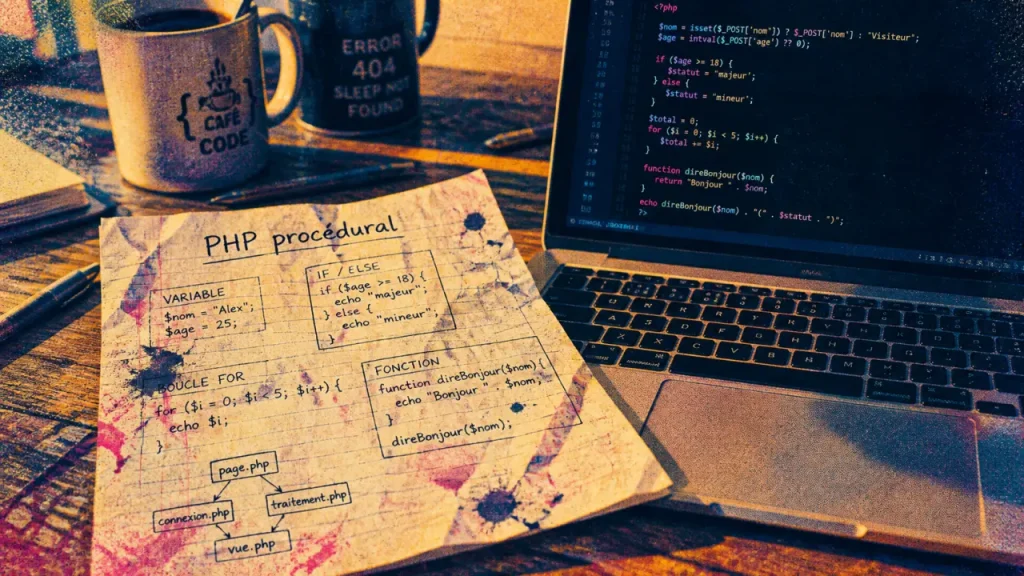 CAFÉ
CODE
ERROR
404
SLEEP NOT
FOUND
<?php
$nom = isset($_POST['nom']) ? $_POST['nom'] : "Visiteur";
$age = intval($_POST['age'] ?? 0);
if ($age >= 18) {
$statut = "majeur';
} else {
$statut = "mineur';
}
$total = 0;
for ($i = 0; $i < 5; $i++) {
$total += $i;
}
function direBonjour($nom) {
return "Bonjour " . $nom;
}
echo direBonjour($nom) . "(" . $statut . ")";
?>
PHP procédural
VARIABLE
$nom = "Alex";
$age = 25;
IF / ELSE
if ($age >= 18) {
echo "majeur";
} else {
echo "mineur";
}
BOUCLE FOR
for ($i = 0; $i < 5; $i++) {
echo $i;
}
FONCTION
function direBonjour($nom) {
echo "Bonjour " . $nom;
}
direBonjour($nom);
page.php
connexion.php
traitement.php
vue.php